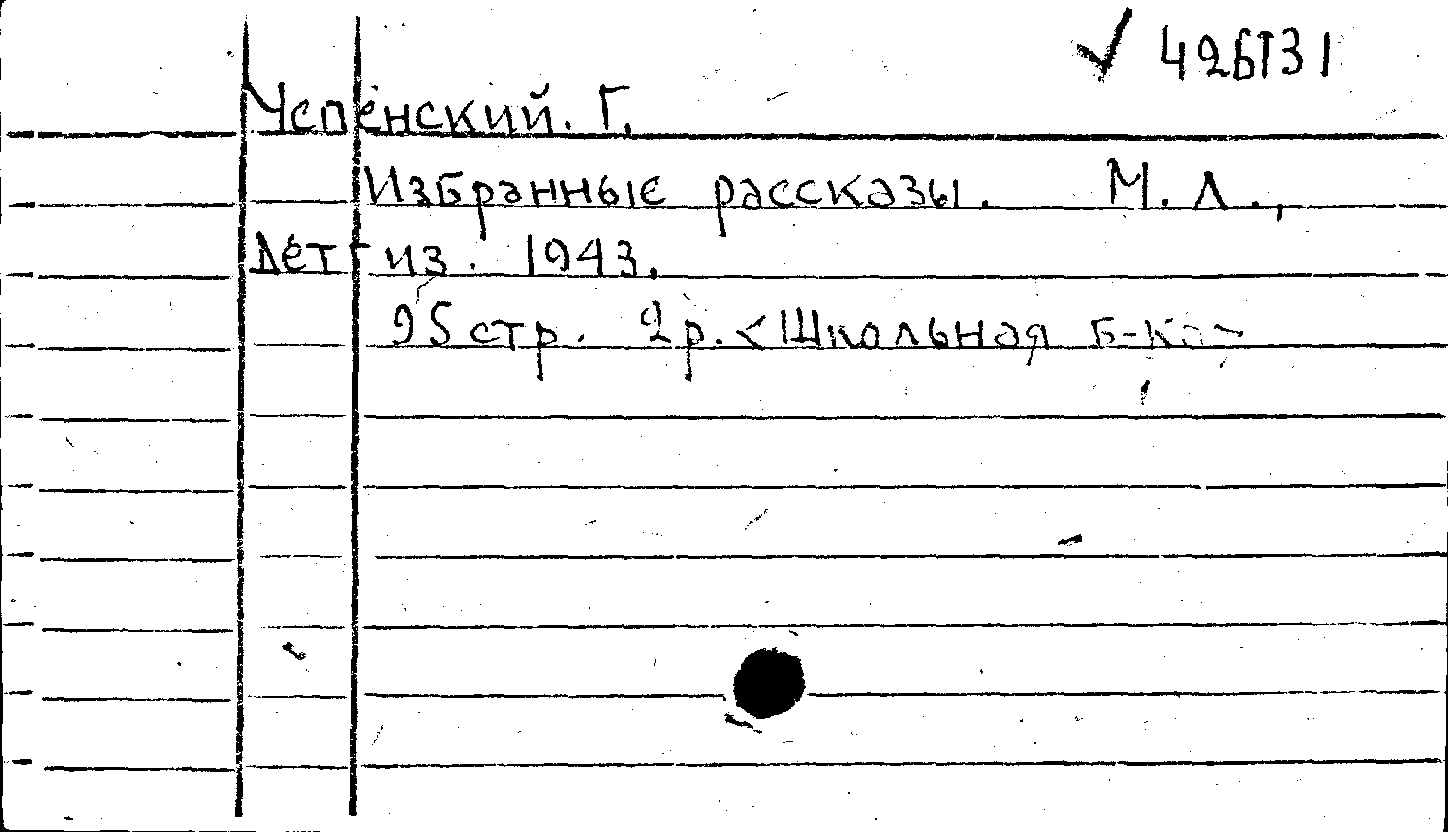 ✓ 426131
Успенский. Г.
Избранные рассказы. М. Л.,
Детгиз. 1943.
95 стр. 2 р. <Школьная б-ка>